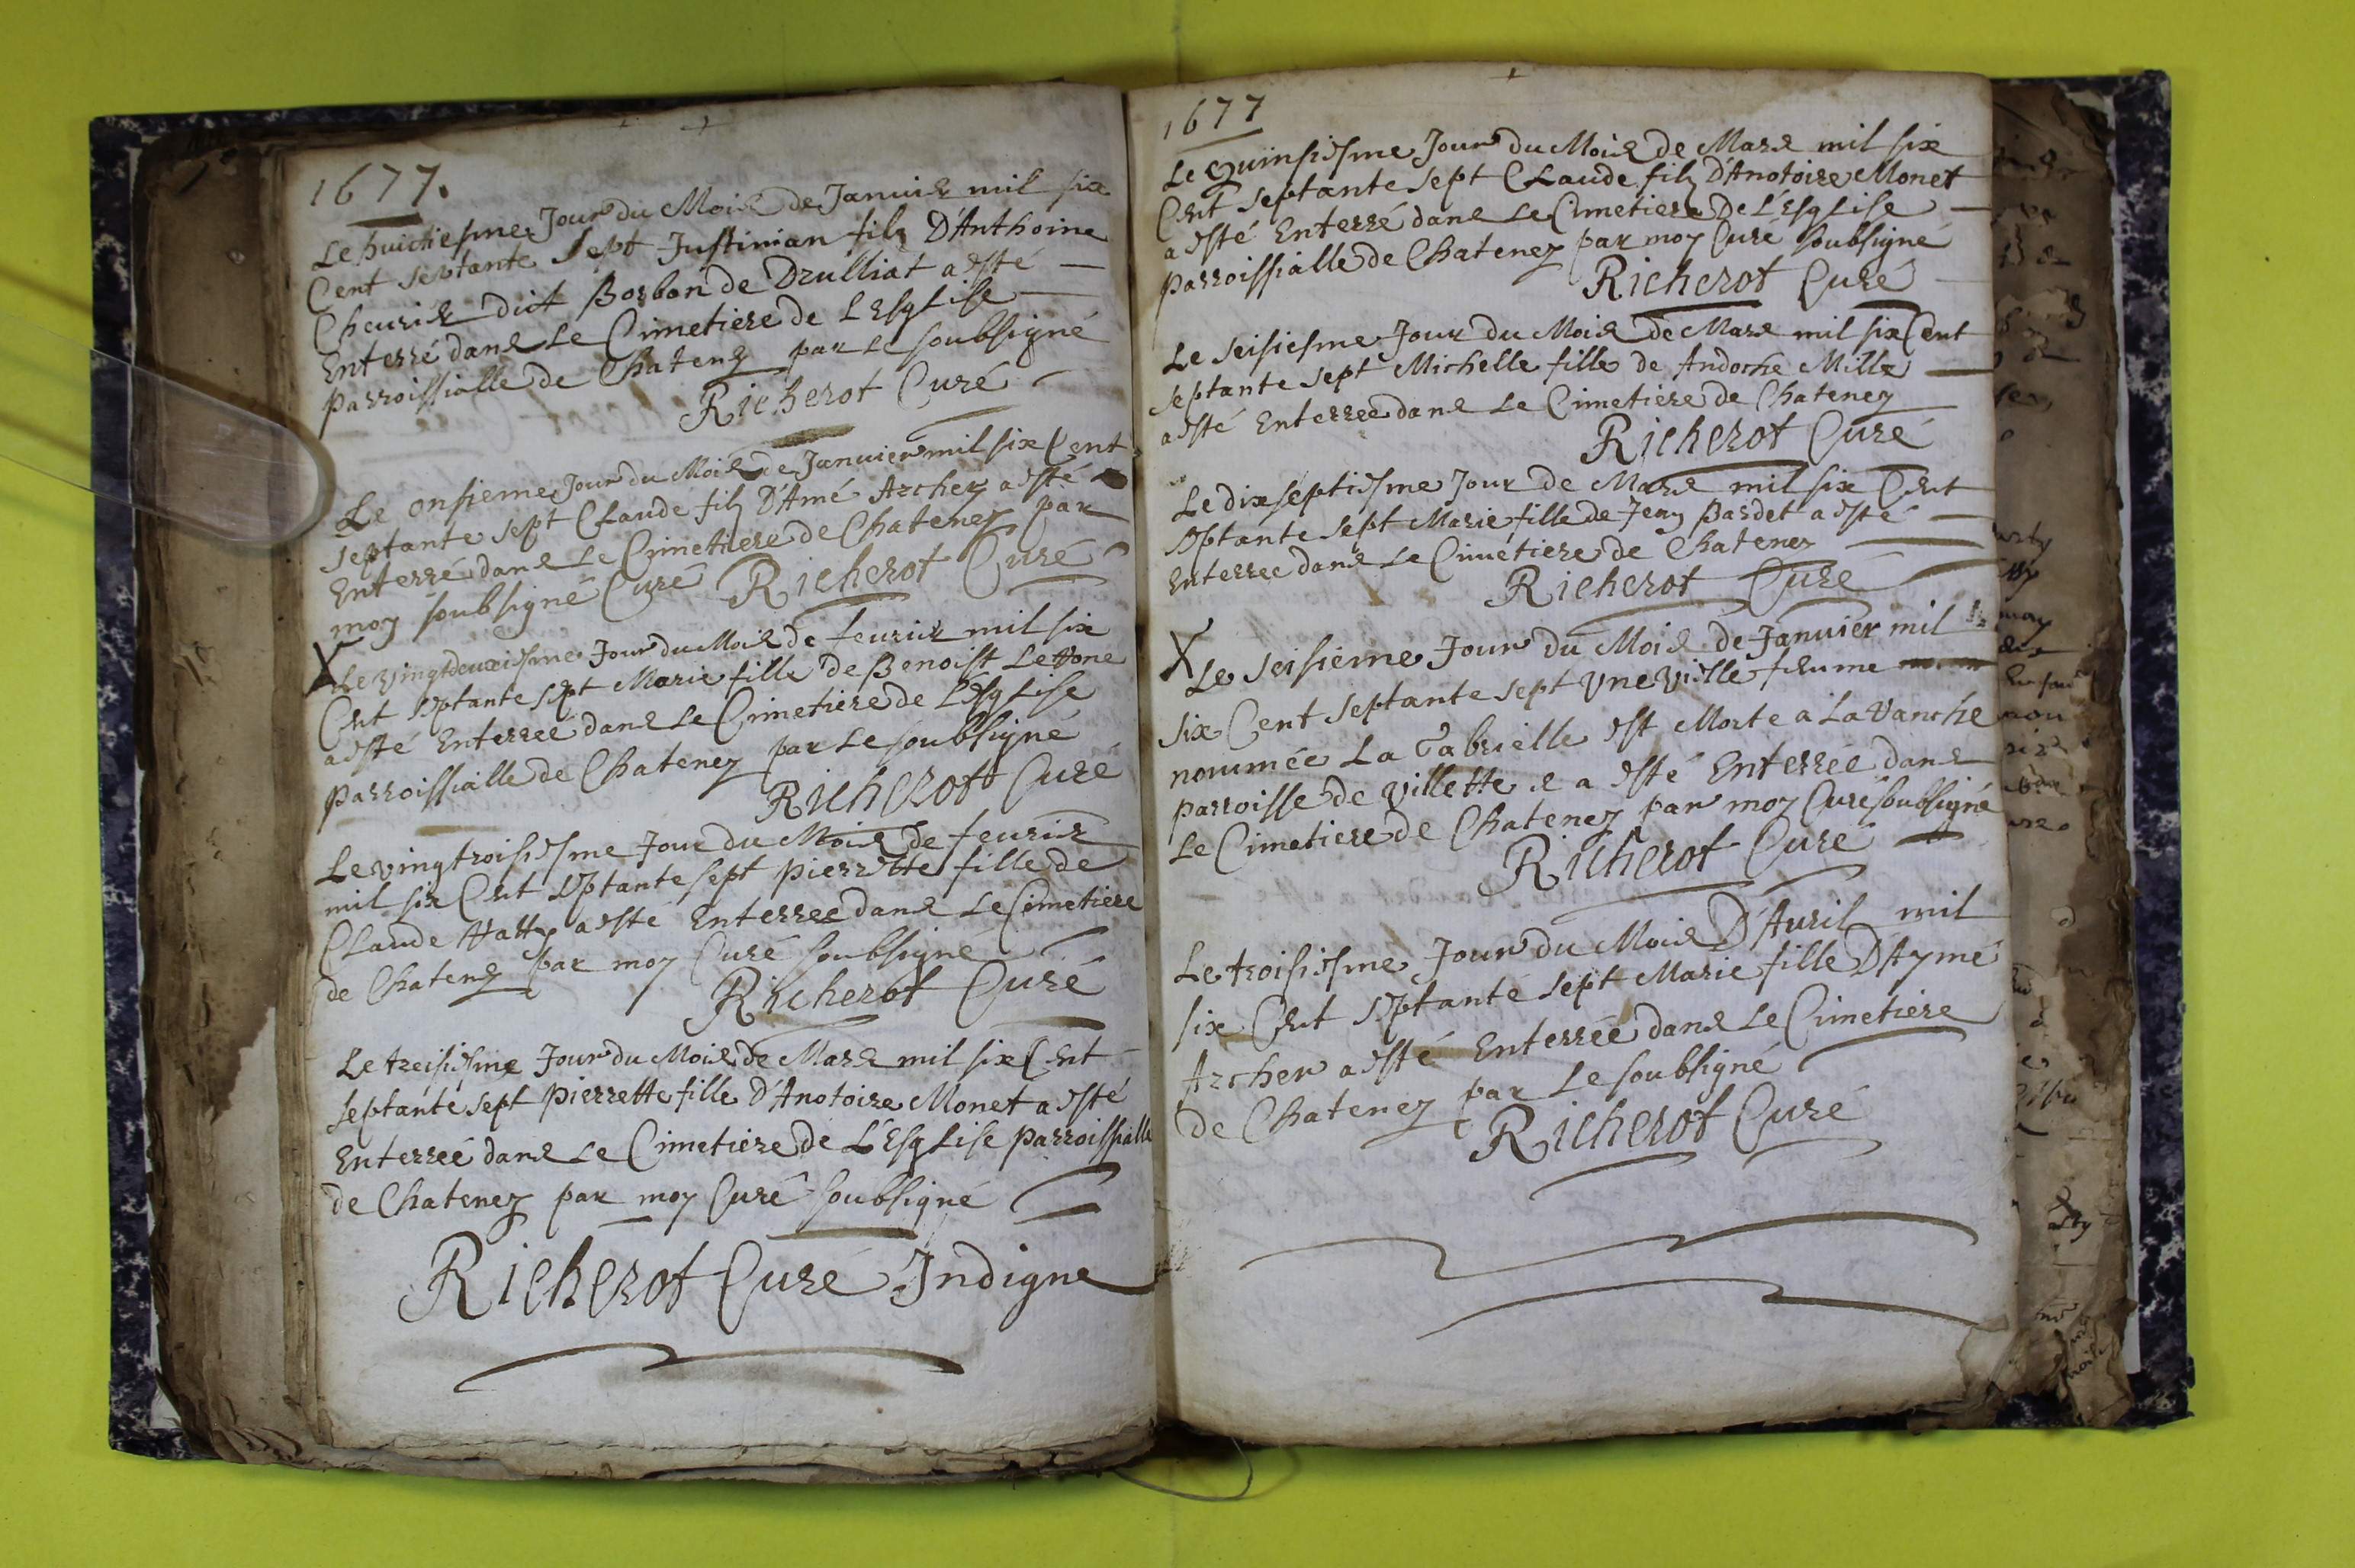 1677.
Le huictiesme Jour du Mois de Januier mil six
Cent septante sept Justinian filz D'Anthoine
Cheurier dit Borbon de Drulliat a esté
Enterré dans Le Cimetiere de L'Esglise
parroissialle de Chateney par Le soubsigné
Richerot Curé
Le onsieme Jour du Mois de Januier mil six Cent
septante sept Claude filz D'Amé Archer a esté
Enterré dans Le Cimetiere de Chateney par
moy soubsigné Curé Richerot Curé
X Le vingtdeuxiesme Jour du Mois de feurier mil six
Cent septante sept Marie fille de Benoist
a esté Enterreé dans Le Cimetiere de L'Esglise
parroissialle de Chateney par Le soubsigné
Richerot Curé
Le vingtroisiesme Jour du Mois de feurier
mil six Cent septante sept pierrette fille de
Claude a esté Enterreé dans Le Cimetiere
de Chateney par moy Curé soubsigné
Richerot Curé
Le treisiesme Jour du Mois de Mars mil six Cent
septante sept pierrette fille D'Anotoire Monet a esté
Enterreé dans Le Cimetiere de L'Esglise parroissialle
de Chateney par moy Curé soubsigné
Richerot Curé Indigne
1677
Le quinsiesme Jour du Mois de Mars mil six
Cent septante sept Claude filz D'Anotoire Monet
a esté Enterré dans Le Cimetiere De L'Esglise
parroissialle de Chateney par moy Curé soubsigné
Richerot Curé
Le seisiesme Jour du Mois de Mars mil six Cent
septante sept Michelle fille de Andoche Millz
a esté Enterreé dans Le Cimetiere de Chateney
Richerot Curé
Le dixseptiesme Jour de Mars mil six Cent
septante sept Marie fille de Jean Bardet a esté
Enterreé dans Le Cimetiere de Chateney
Richerot Curé
X Le seisieme Jour du Mois de Januier mil
six Cent septante sept Une vielle femme
nommée La Gabrielle est Morte a La Vanche
parroisse de Villette e a esté Enterrée dans
Le Cimetiere de Chateney par moy Curé soubsigné
Richerot Curé
Le troisiesme Jour du Mois D'Auril mil
six Cent septante sept Marie fille D'Aymé
Archer a esté Enterrée dans Le Cimetiere
de Chateney par Le soubsigné
Richerot Curé